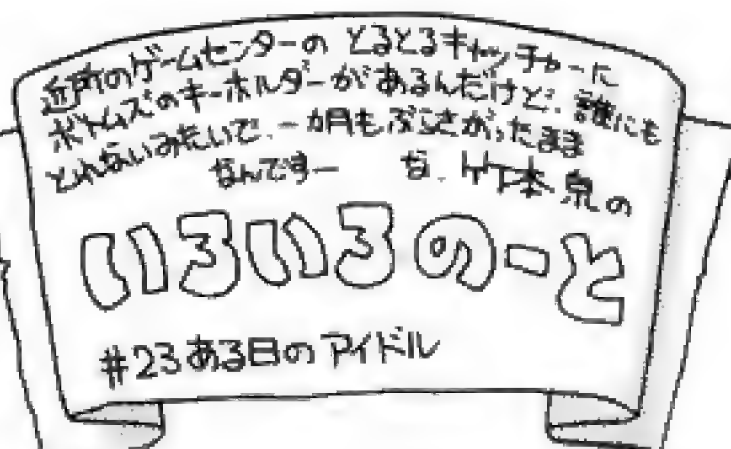 近所のゲームセンターの とるとるキャッチャーに
ボトムズのキーホルダーがあるんだけど、誰にも
とれないみたいで、一カ月もぶらさがったまま
なんですー な、竹本泉の
いろいろのーと
#23ある日のアイドル